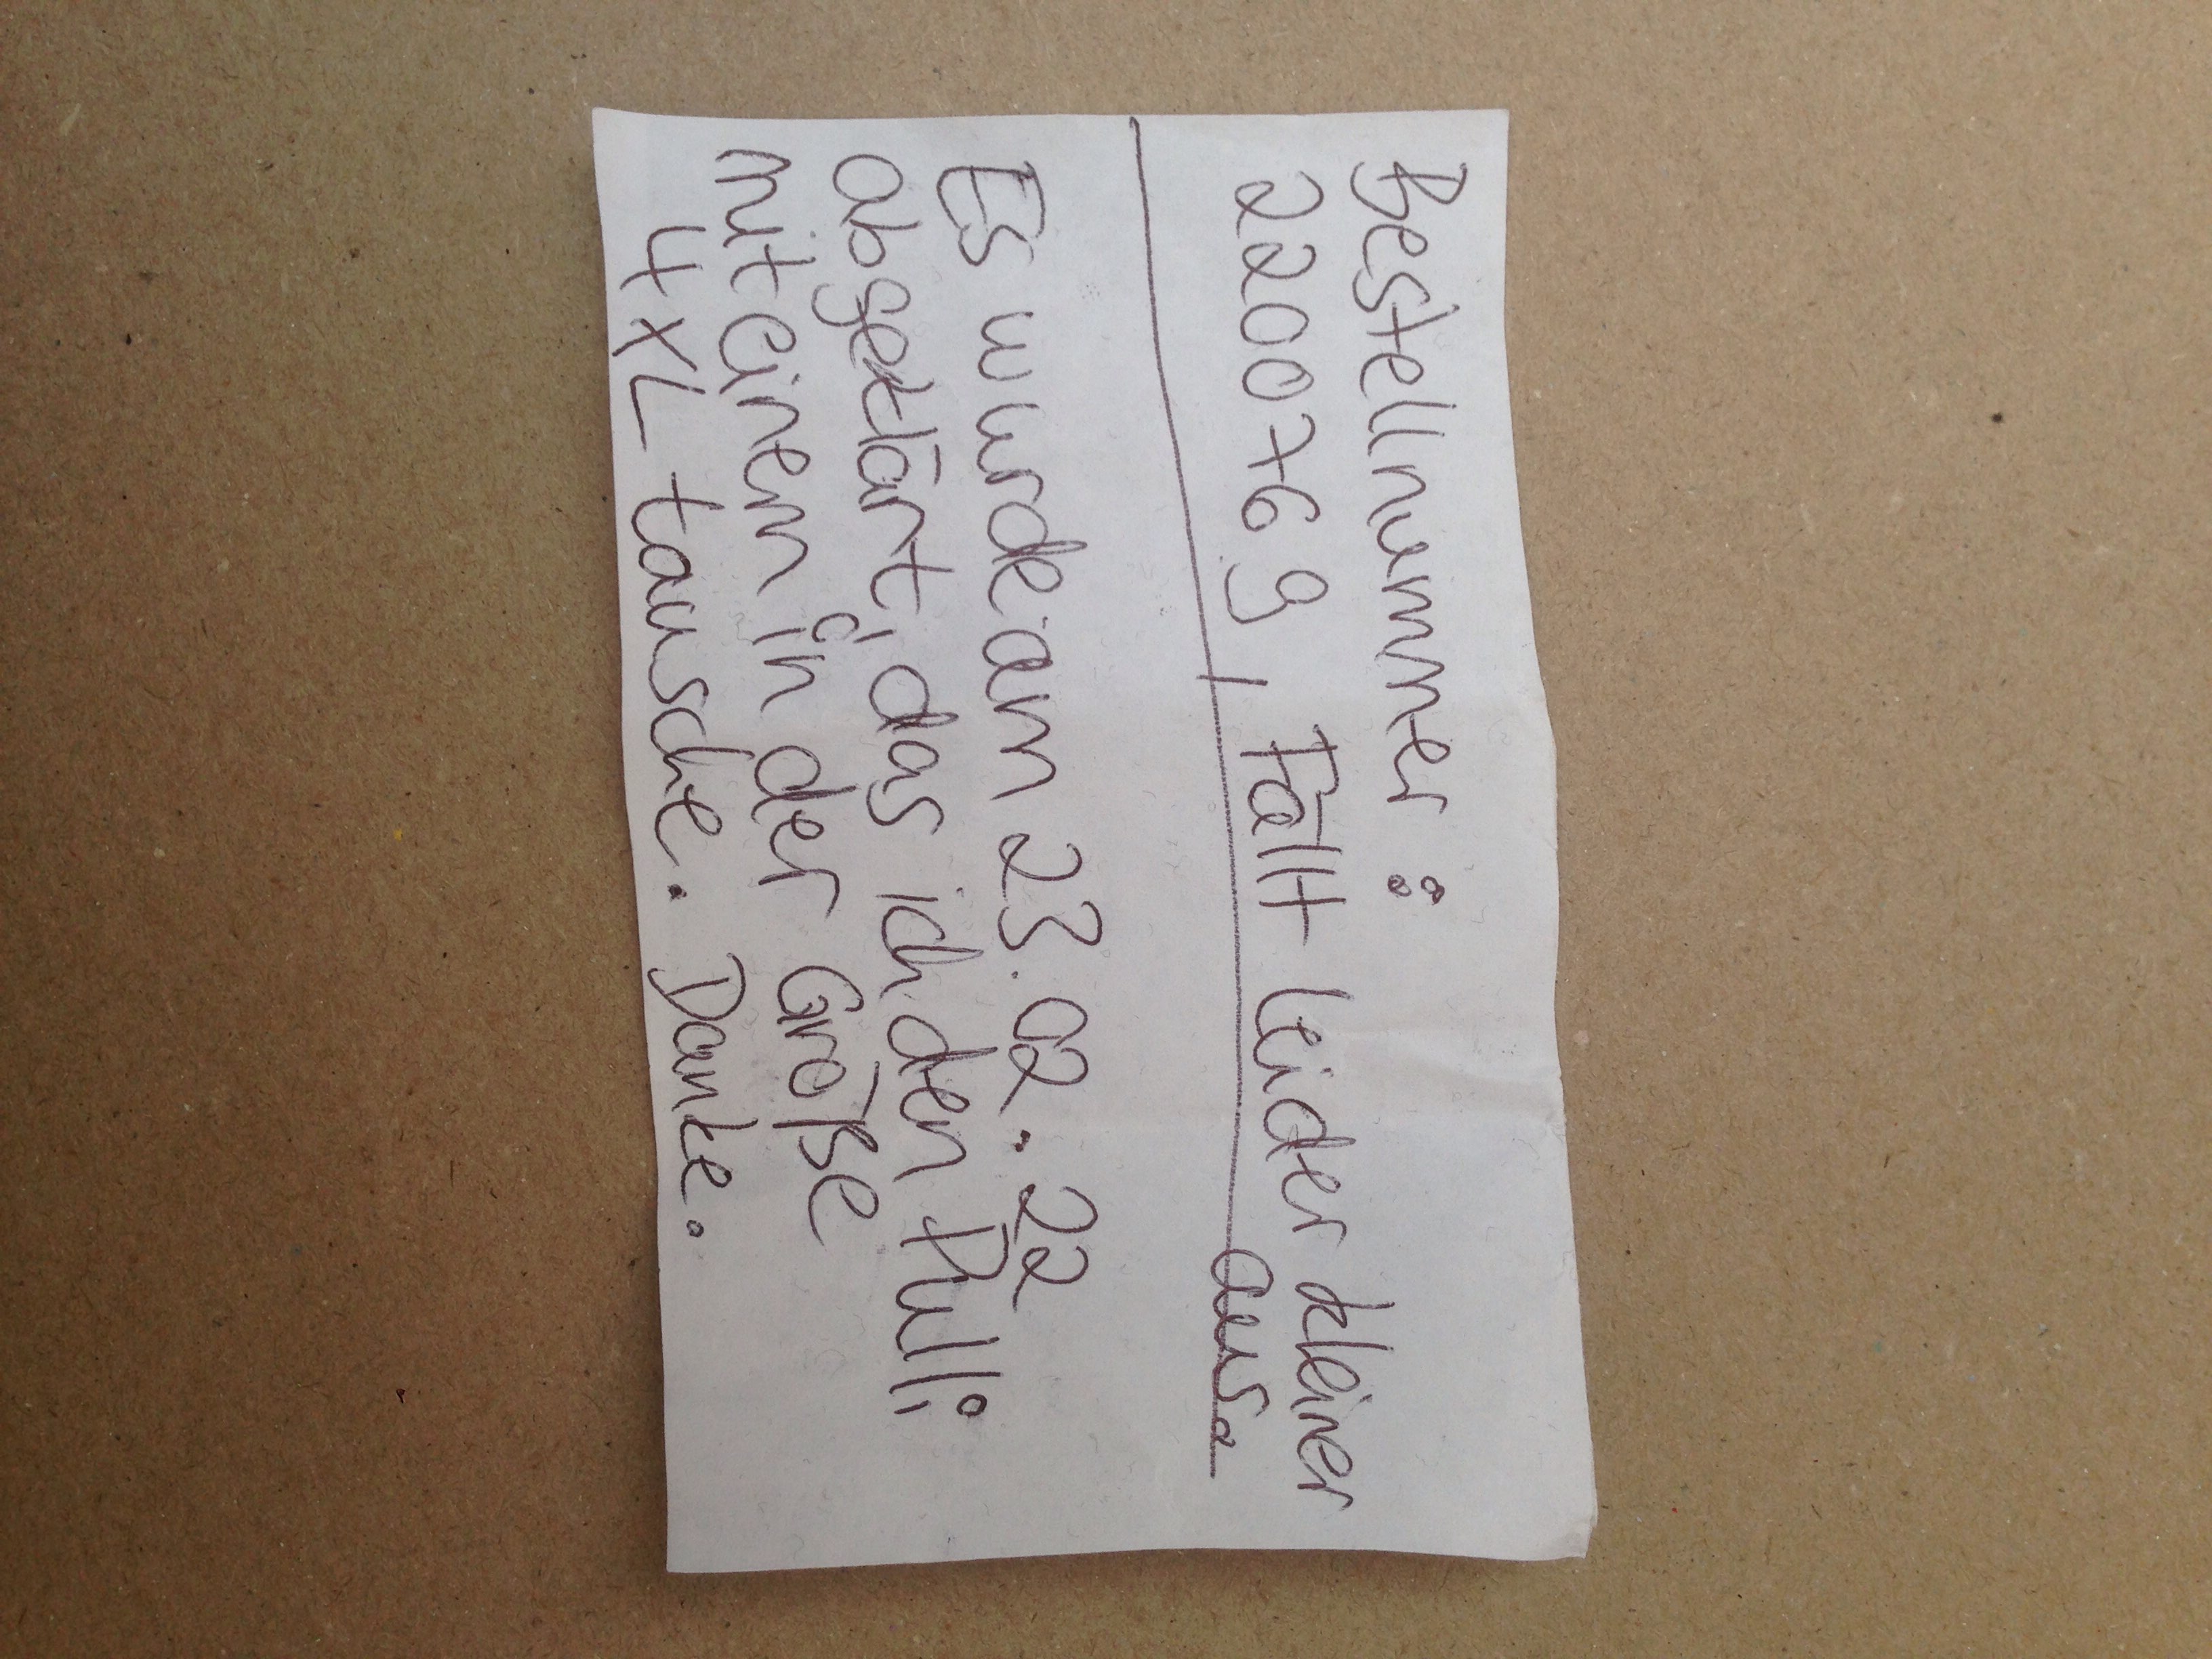 Bestellnummer:
2200769, Fällt leider kleiner
aus.
Es wurde am 23.02.22
abgeklärt, das ich den Pulli
mit einem in der Größe
4XL tausche. Danke.